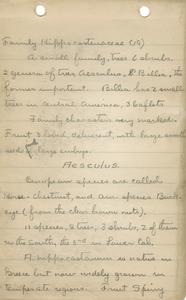 Family Hippocastanaceae
A small family, trees & shrubs.
2 genera of trees Aesculus, & Billia, the
former important. Billia has 2 small
trees in central America, 3 leaflets
Family characters very marked.
Fruit 3 lobed dehiscent, with large small
seeds large embryo.
Aesculus.
European species are called
Horse-chestnut, and Am. species Buck-
eye (from the clear brown nuts).
11 species, 8 trees, 3 shrubs, 2 of them
in the South, the 3rd in Lower Cal.
A. hippocastanum is native in
Greece but now widely grown in
temperate regions. Fruit spiny